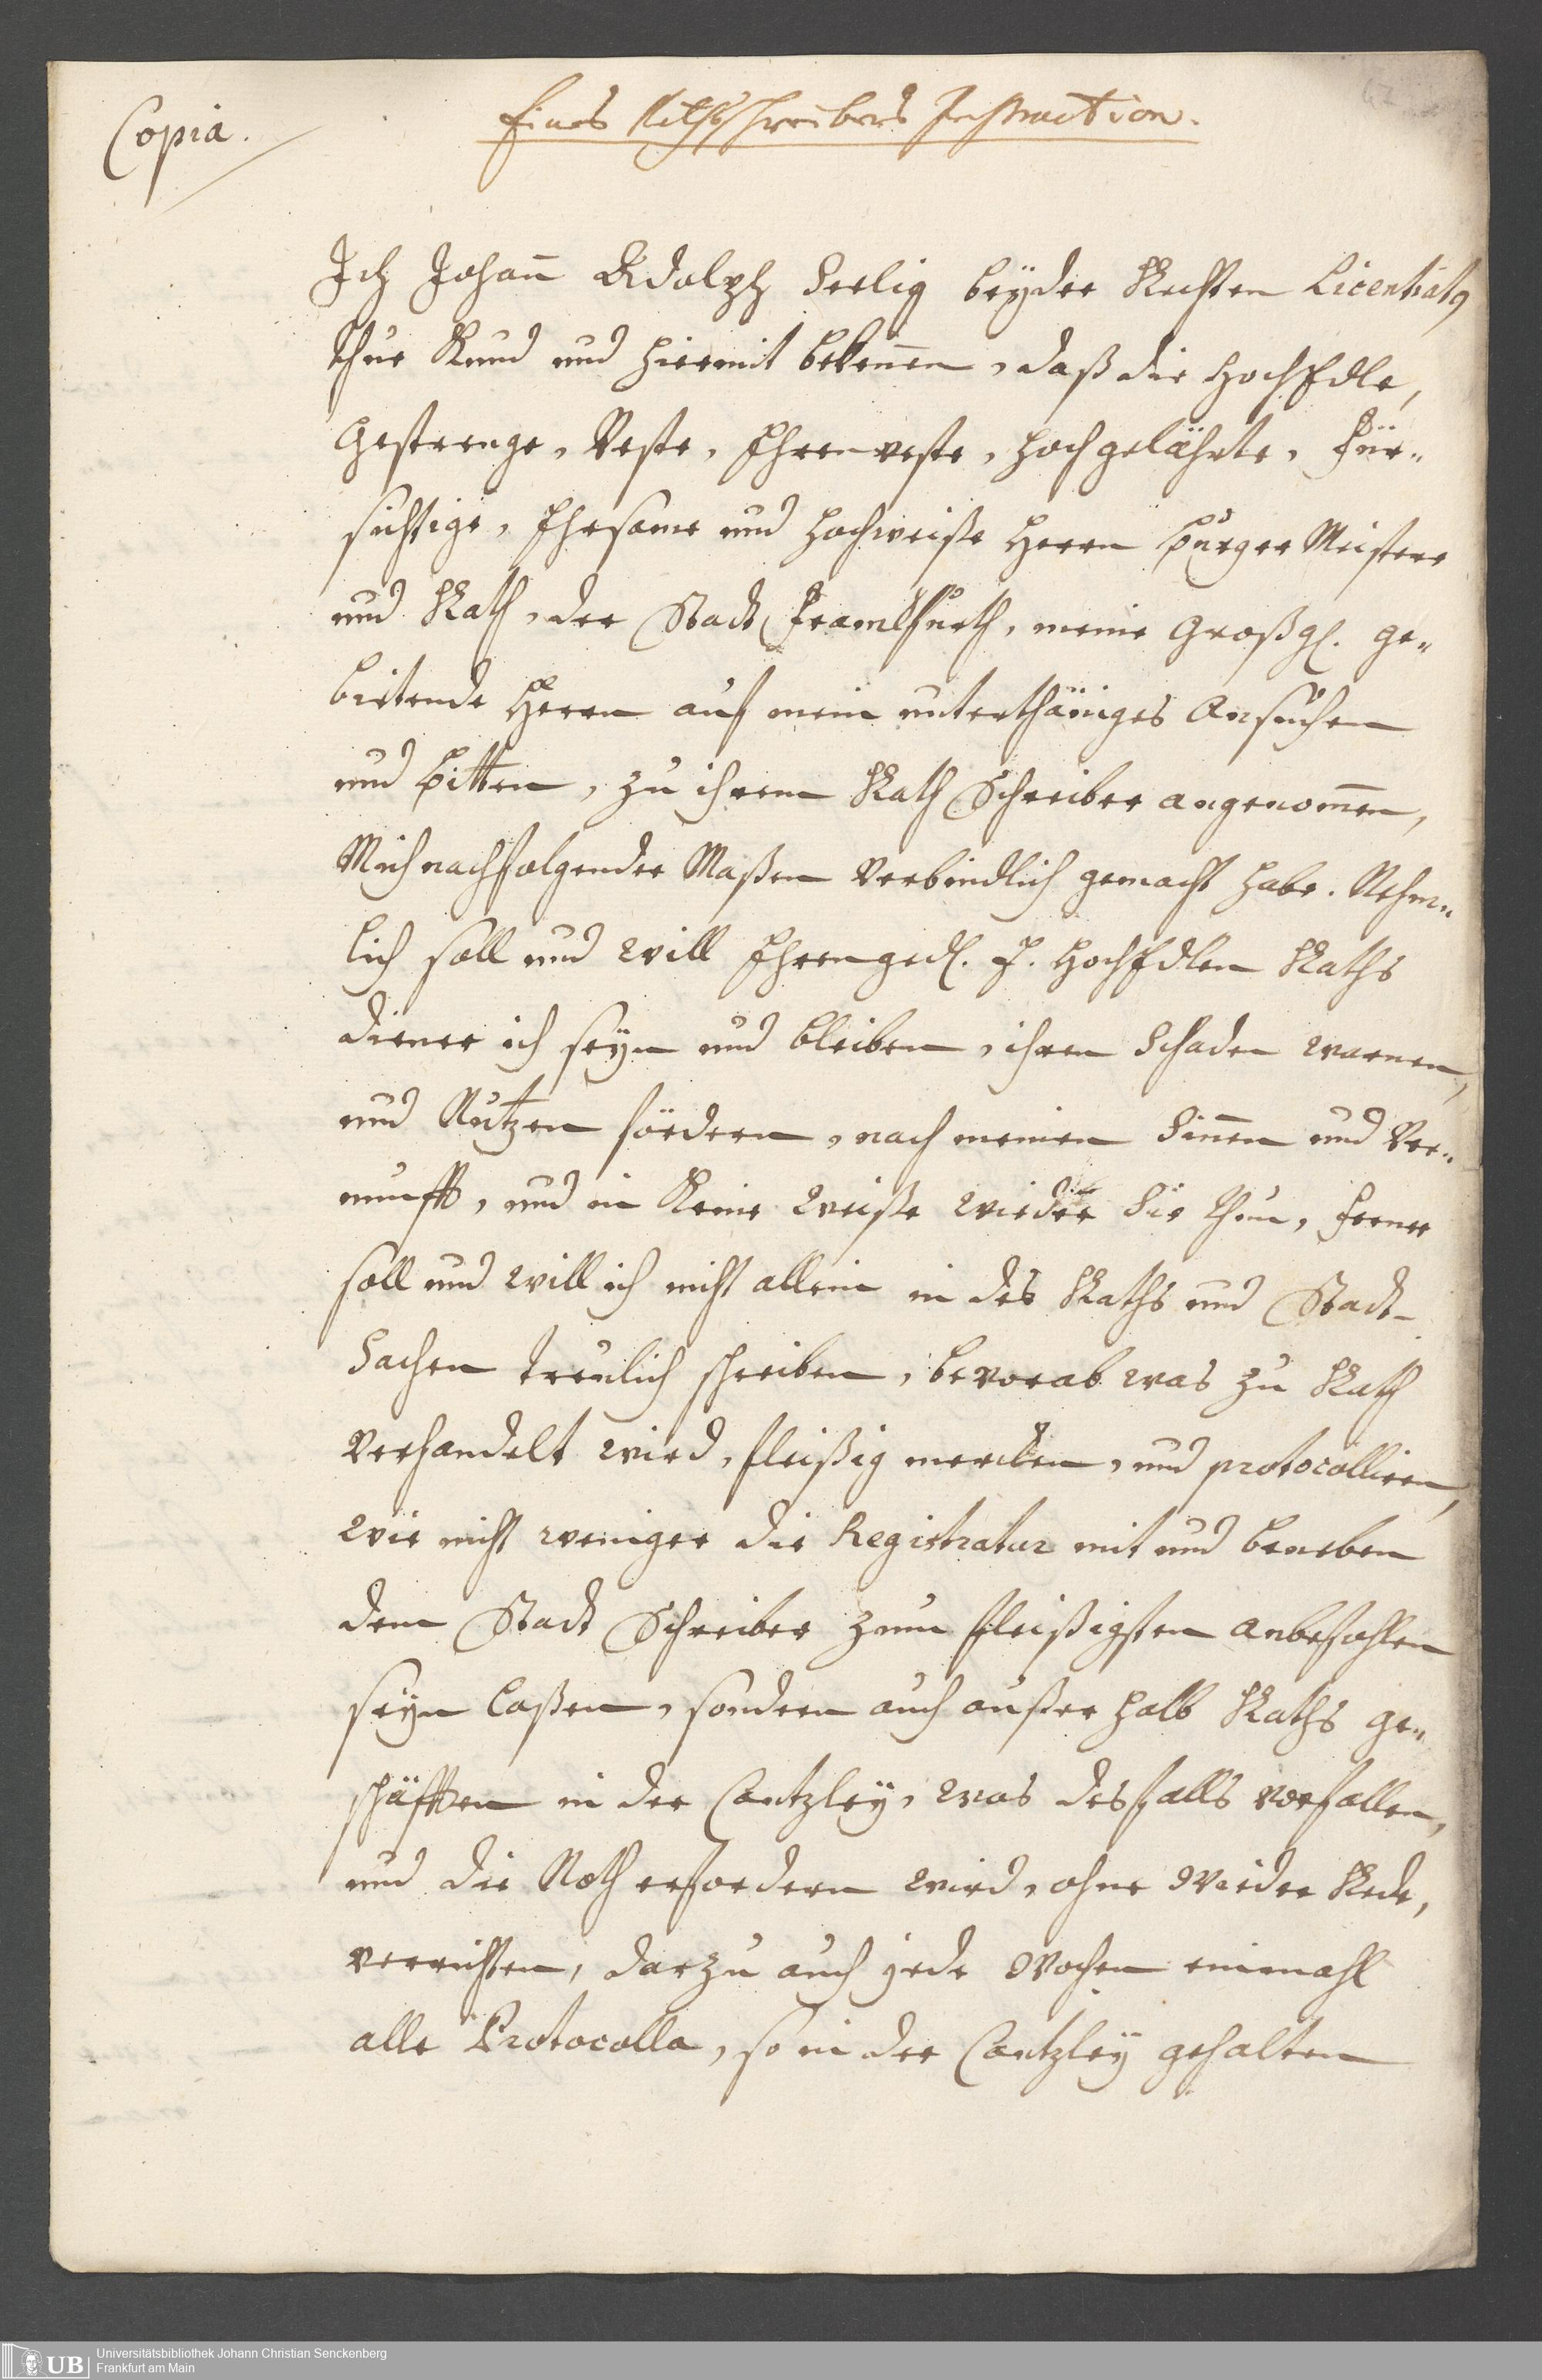 Copia.
Eines Rathschreibers Instruction.
Ich Johann Adolph Seelig beyder Rechten Licentiatus
thue Kund und hiermit bekennen, daß die HochEdle,
Gestrenge, Veste, Ehrenveste, hochgelährte, Für„
sichtige, Ehrsame und hochweiße Herrn Burger Meistere
und Rath, der Stadt Franckfurth, meine Großgl. ge„
bietende Herrn auf mein unterthäniges Ansuchen
und bitten, zu ihrem Rath Schreiber angenommen,
Mich nachfolgender Maßen verbindlich gemacht habe. Nehm„
lich soll und will Ehrengedl. E. HochEdlen Raths
diener ich seyn und bleiben, ihren Schaden warnen,
und Nutzen fördern, nach meinen Sinnen und Ver„
nunfft, und in Keine weiße wieder Sie thun, ferner
soll und will ich nicht allein in des Raths und Stadt-
Sachen treulich schreiben, bevorab was zu Rath
verhandelt wird, fleißig mercken, und protocolliren,
wie nicht weniger die Registratur mit und beneben
dem Stadt Schreiber zum fleißigsten anbefohlen
seyn laßen, sondern auch außerhalb Raths ge„
schäfften in der Cantzley, was desfalls vorfallen,
und die Noth erfordern wird, ohne Wieder Rede,
verrichten, darzu auch jede Wochen einmahl
alle Protocolla, so in der Cantzley gehalten
UB
Universitätsbibliothek Johann Christian Senckenberg
Frankfurt am Main